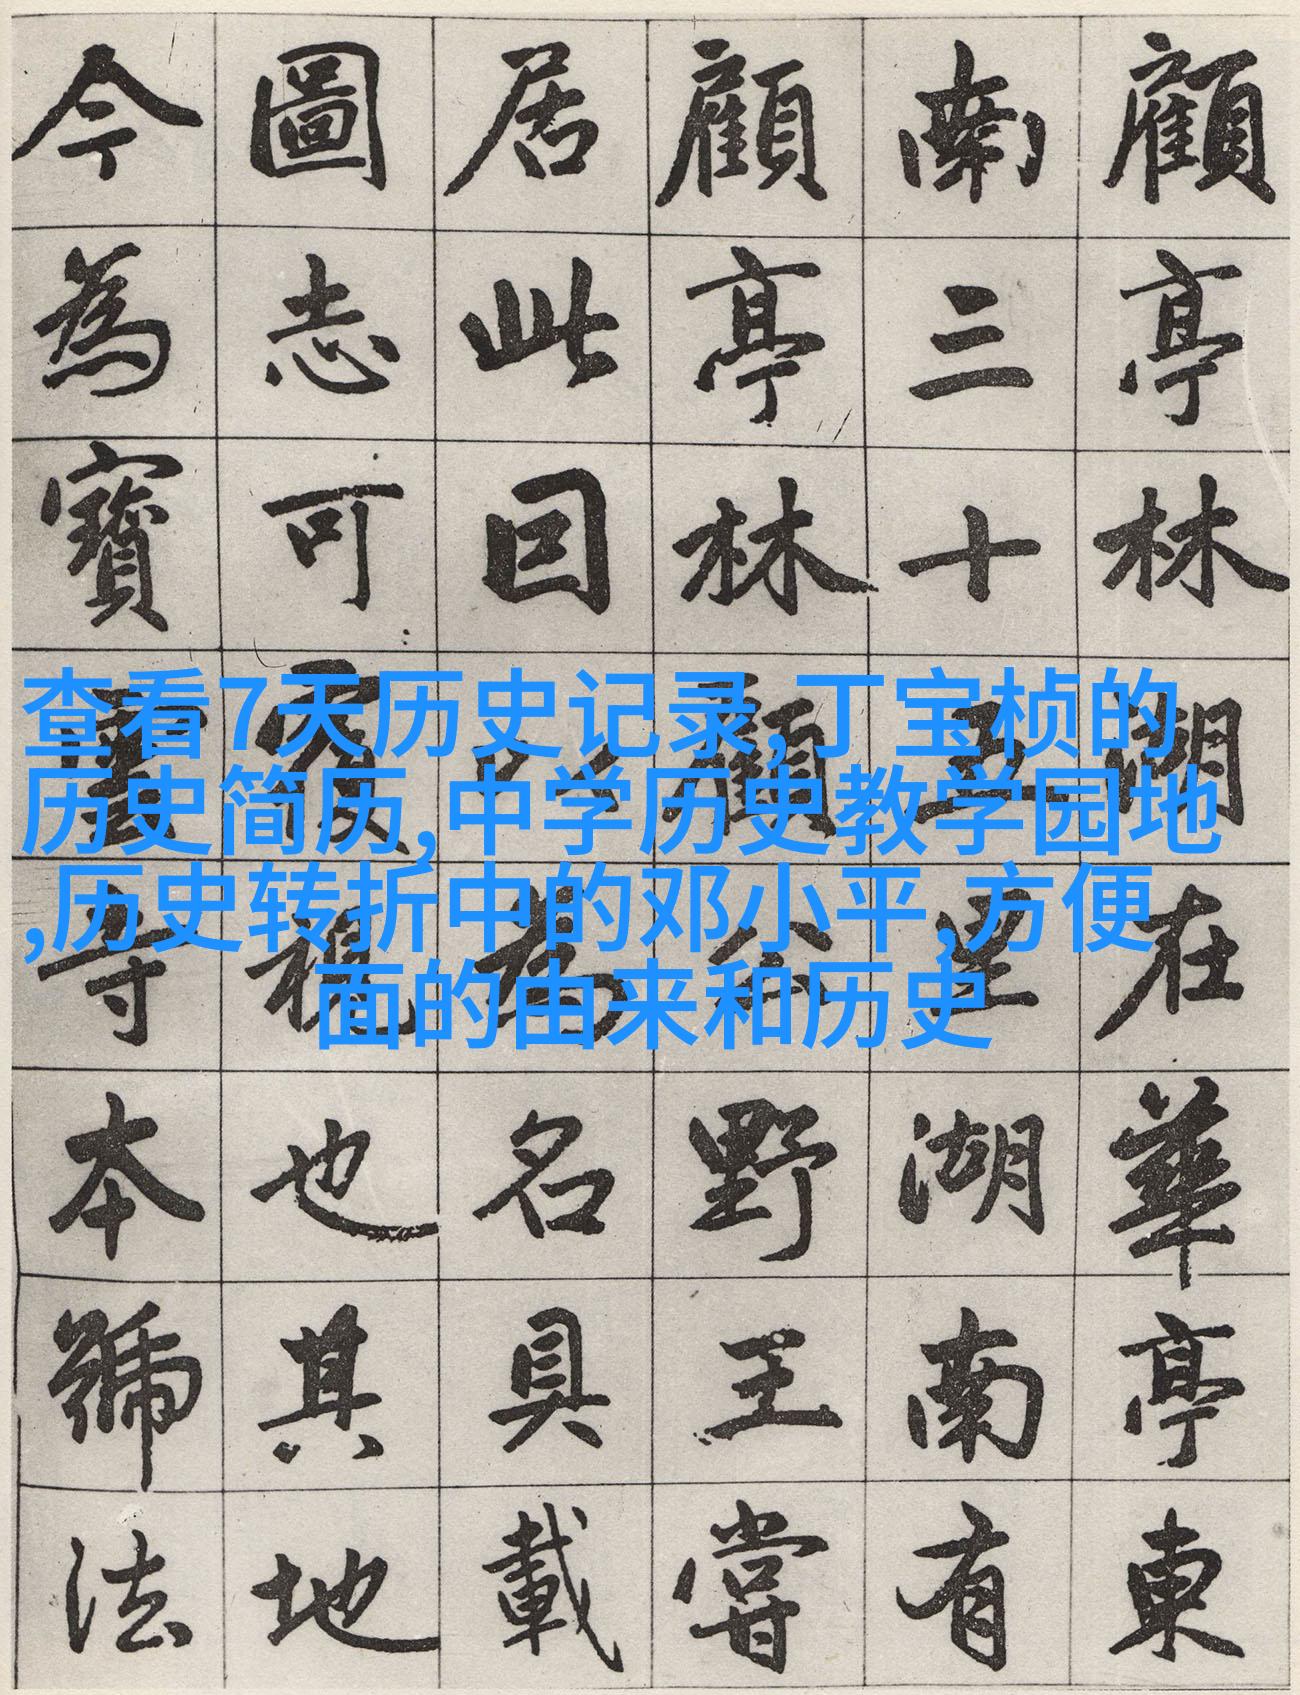 顧亭林湖在華亭東
南三十五里湖南有
顧亭林顧公野王嘗
居此因以為名具載
圖志可覆視也其地
今為寶雲寺本號法
查看7天历史记录,丁宝桢的
历史简历,中学历史教学园地
,历史转折中的邓小平,方便
面的由来和历史